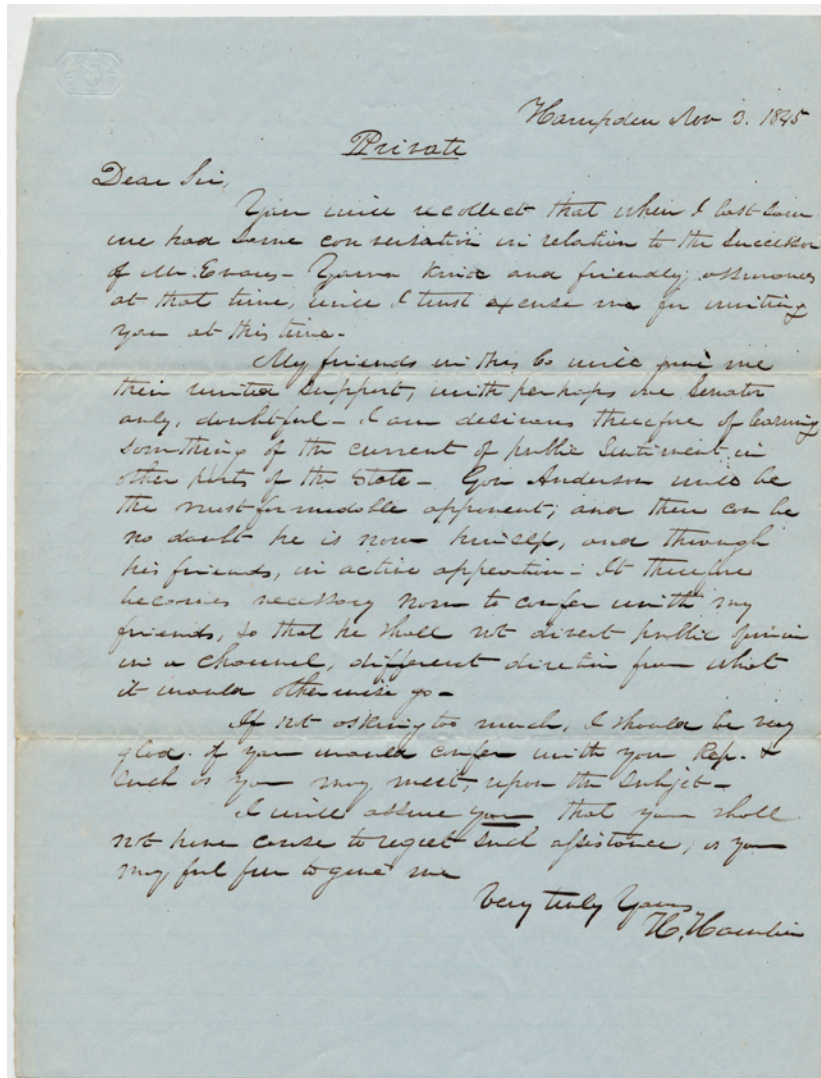 Hampden Nov 3. 1845
Private
Dear Sir,
You will recollect that when I last saw
we had some conversation in relation to the Successor
of Mr. Evans - Your kind and friendly assurances
at that time, will I trust excuse me for writing
you at this time -
My friends in this Co will give me
their united support, with perhaps one Senator
only, doubtful - I am desirous therefore of learning
something of the current of public Sentiment in
other parts of the State - Gov Anderson will be
the most formidable opponent; and there can be
no doubt he is now himself, and through
his friends, in active opperation - It therefore
becomes necessary now to confer with my
friends, so that he shall not divert public opinion
in a channel, different direction from what
it would otherwise go -
If not asking too much, I should be very
glad. if you would confer with your Rep. &
such as you may meet, upon the Subject -
I will assure you that you shall
not have cause to regret such assistance, as you
may feel free to give me
Very truly Yours
H. Hamlin